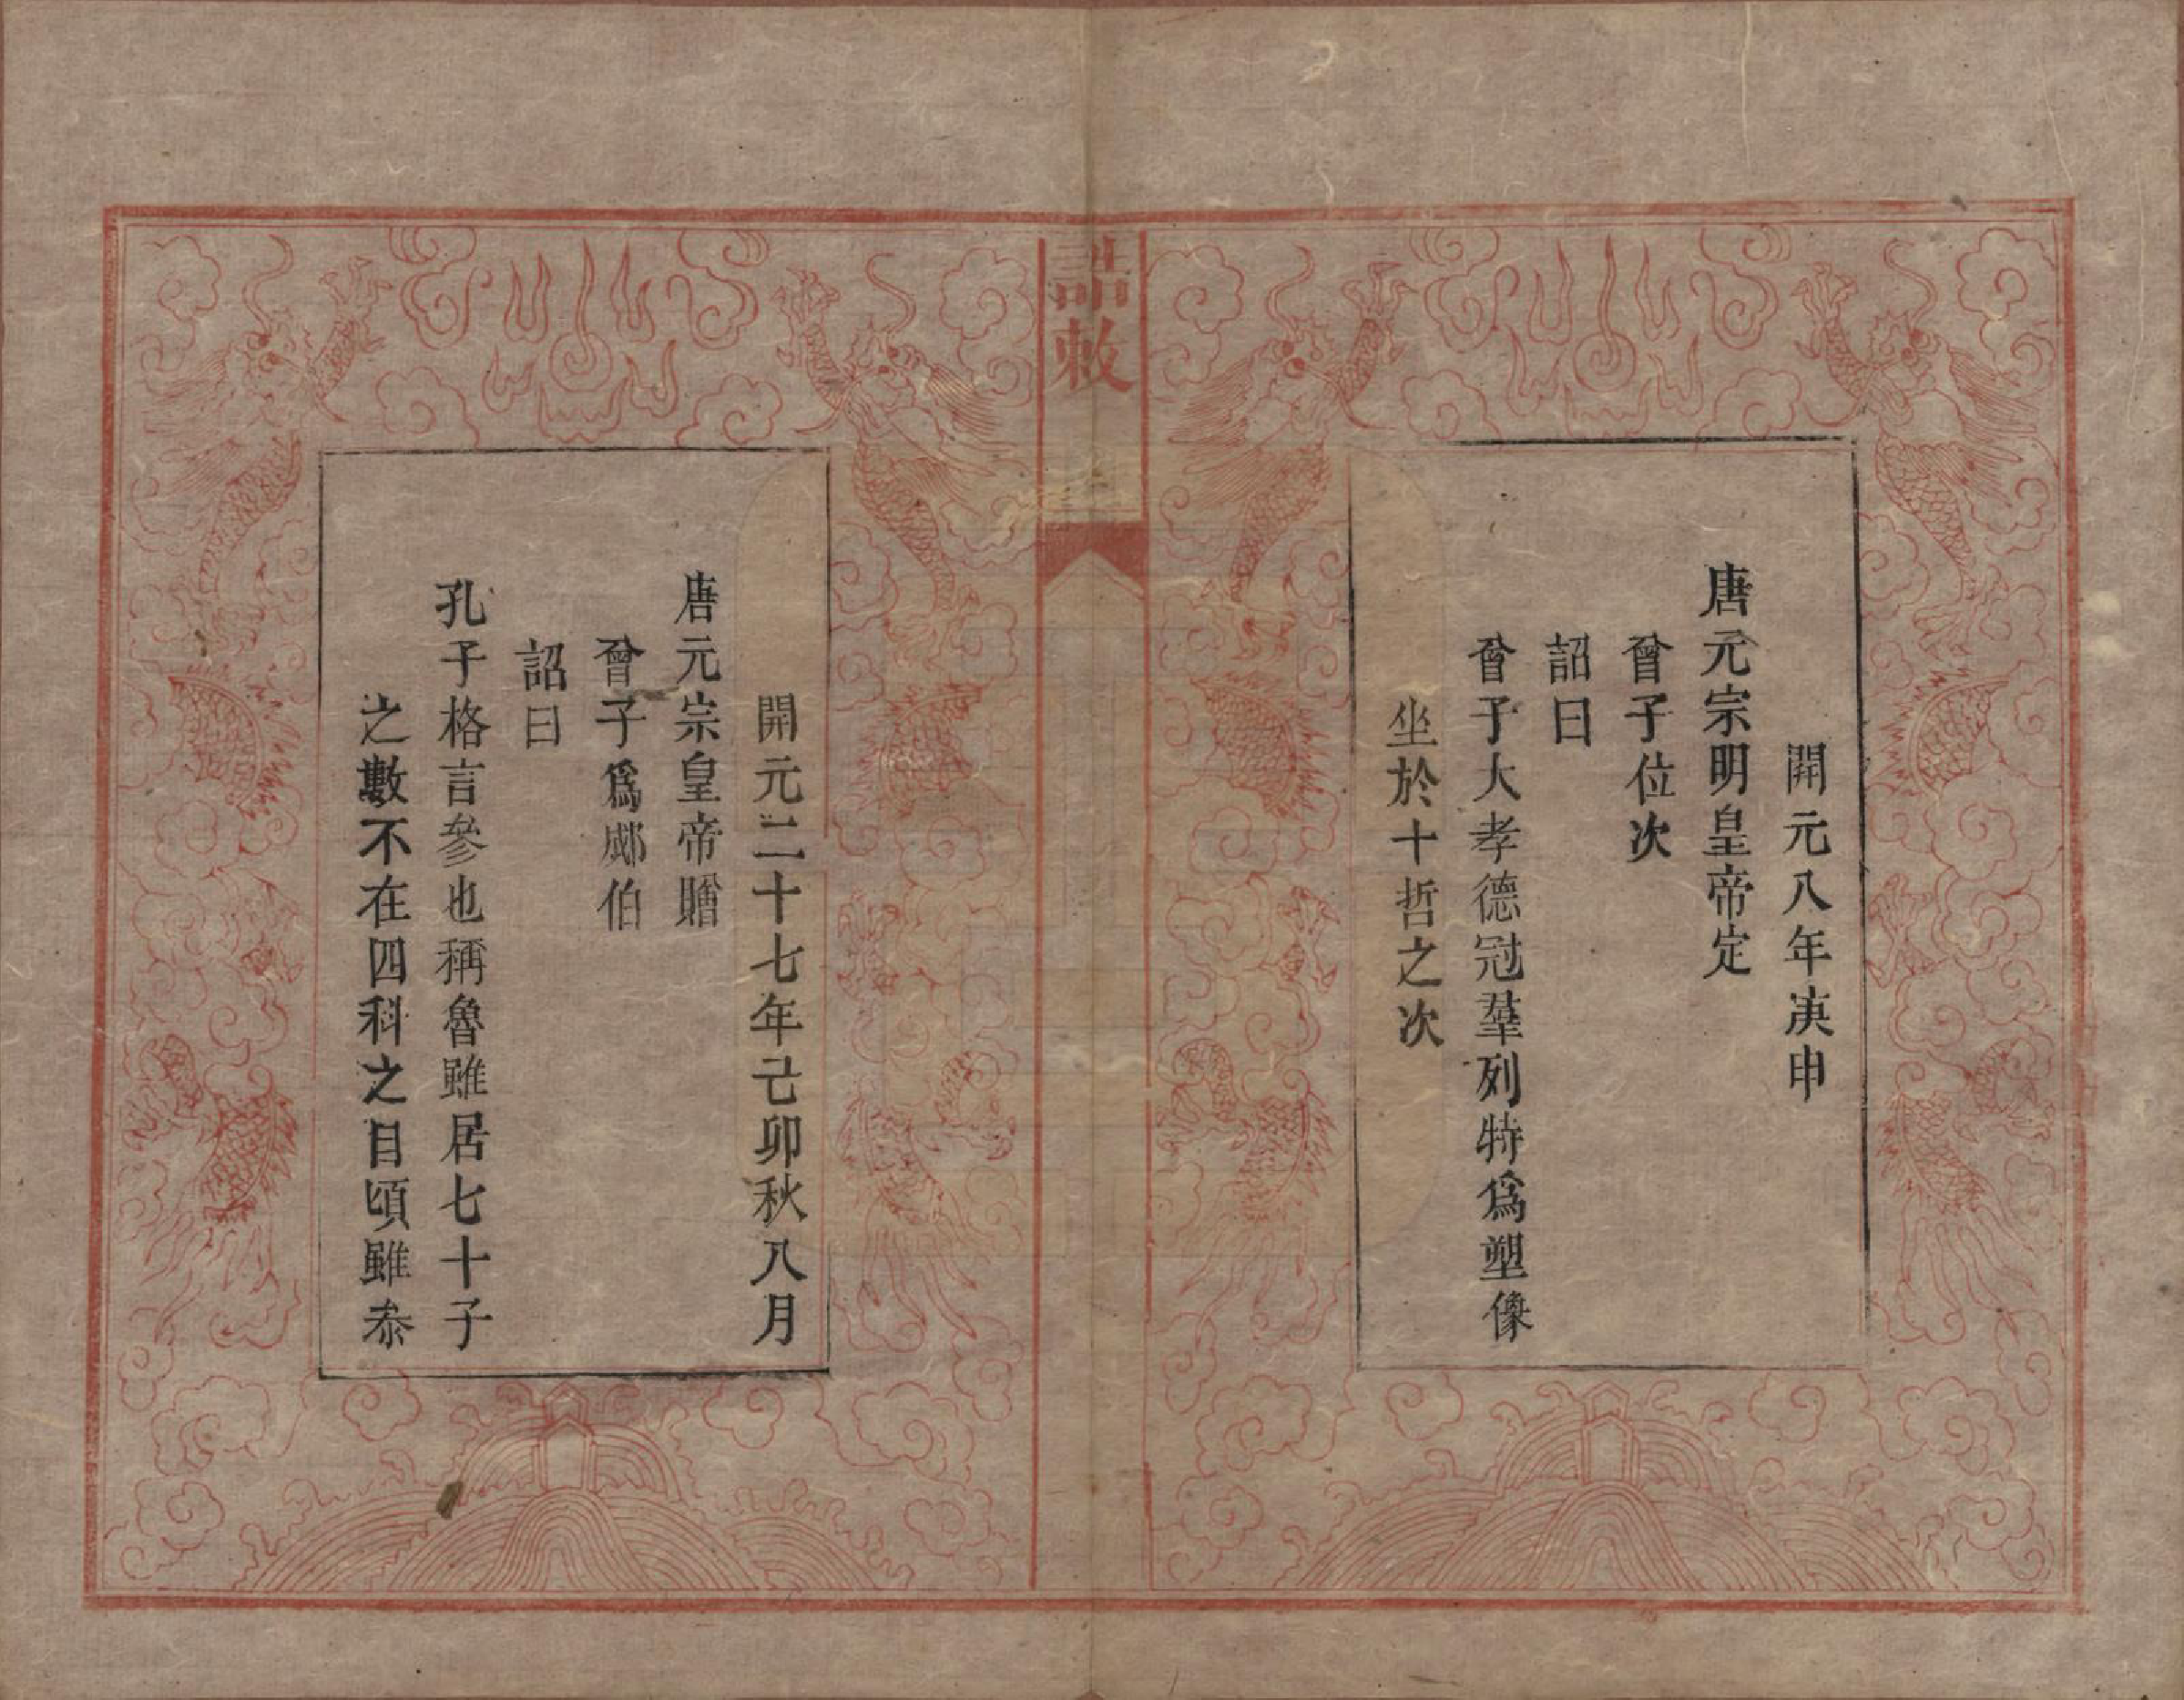 開元八年庚申
唐元宗明皇帝定
曾子位次
詔曰
曾子大孝德冠羣列特爲塑像
坐於十哲之次
誥敕
開元二十七年己卯秋八月
唐元宗皇帝贈
曾子爲郕伯
詔曰
孔子格言參也稱魯雖居七十子
之數不在四科之目頃雖泰